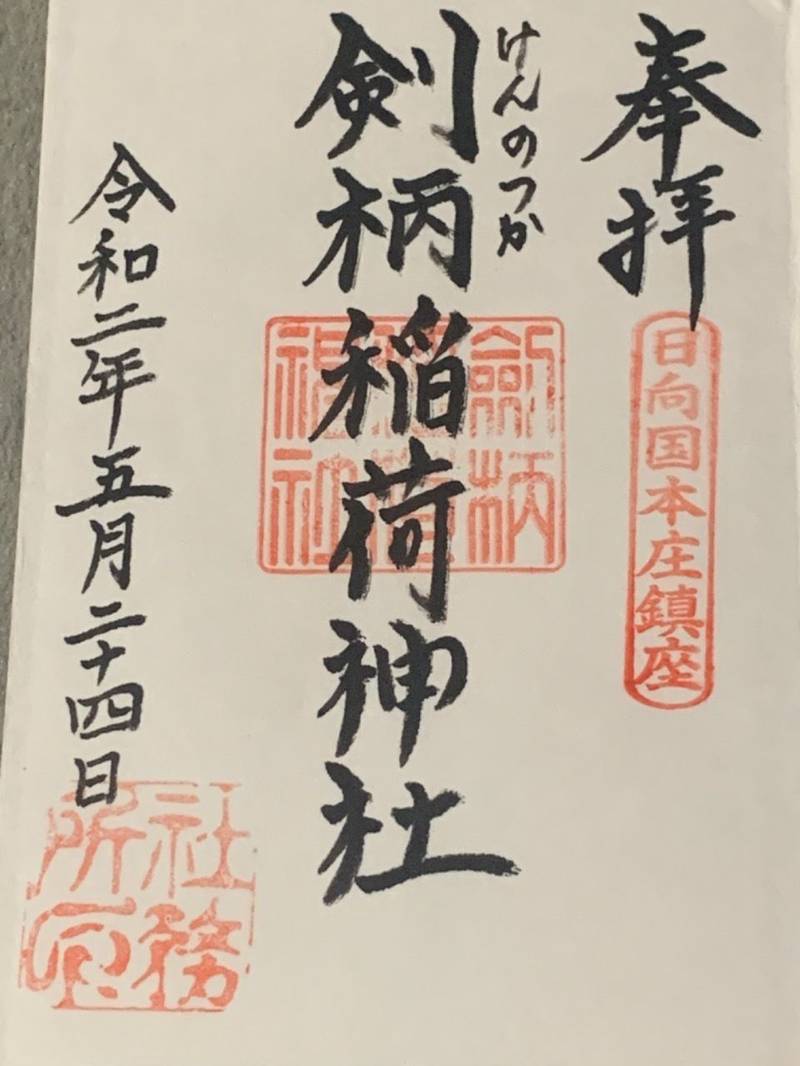 奉拝
日向国本庄鎮座
けんのつか
剣柄稲荷神社
劔柄稲荷神社
令和二年五月二十四日
社務所印